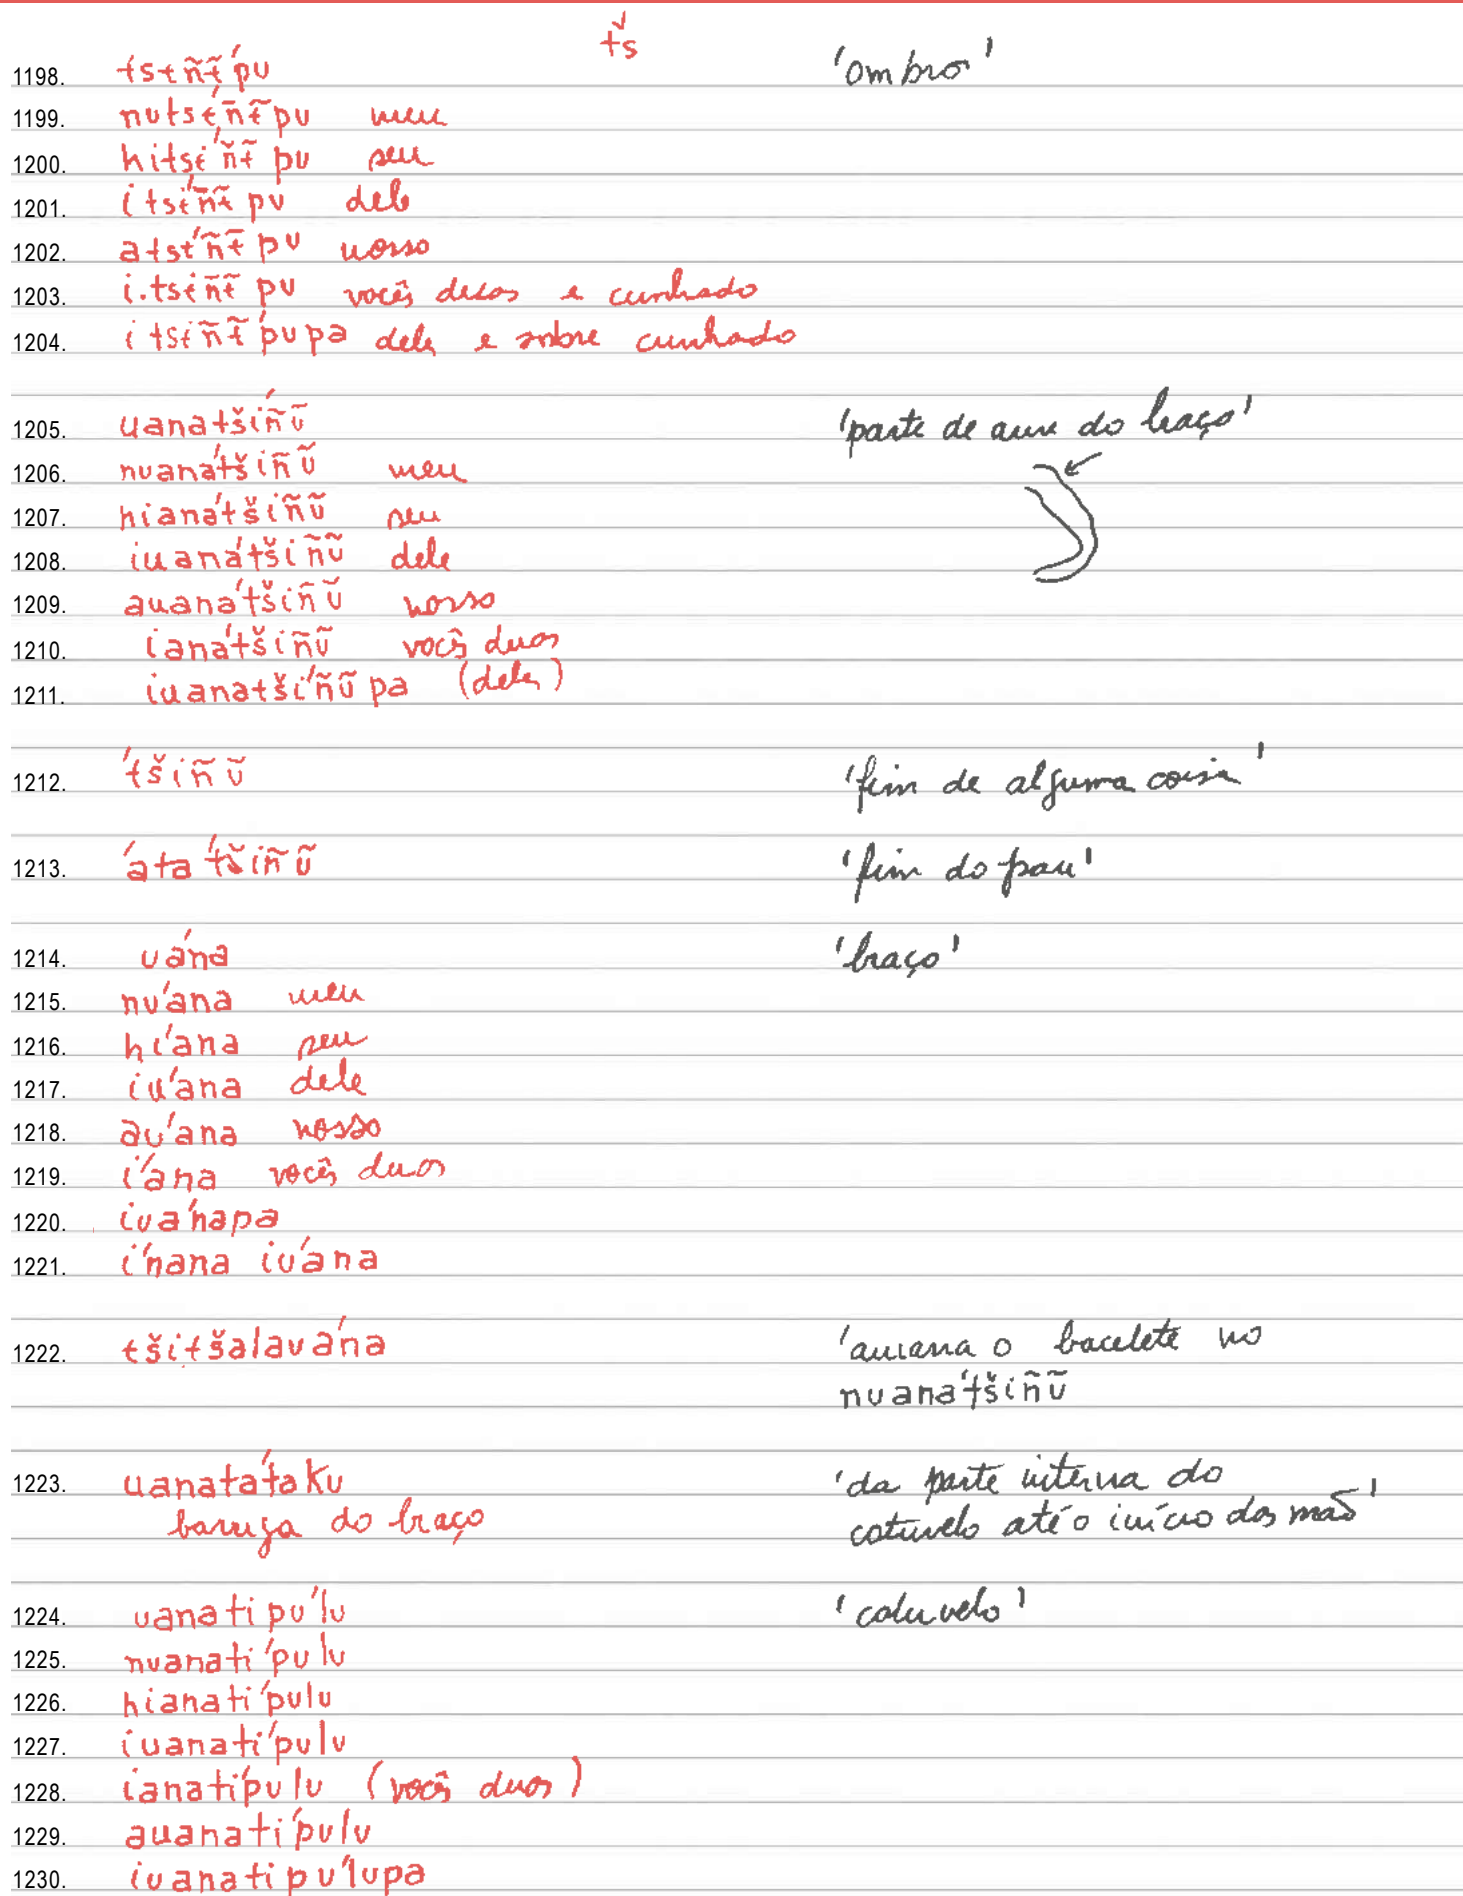 tš
1198. tsɨñɨ̃́pu 'ombro'
1199. nutsɨ́ñɨ̃pu meu
1200. hitsɨ́ñɨ̃pu seu
1201. itsɨ́ñɨ̃pu dele
1202. atsɨ́ñɨ̃pu nosso
1203. i.tsɨñɨ̃pu vocês duos e cunhado
1204. itsɨñɨ̃́pupa deles e sobre cunhado
1205. uanatšíñũ 'parte de do braço'
1206. nuanátšiñũ meu
1207. hianátšiñũ seu
1208. iuanátšiñũ dele
1209. auanátšiñũ nosso
1210. ianátšiñũ vocês duos
1211. iuanatšíñũpa (deles)
1212. 'tšiñũ 'fim de alguma coisa'
1213. 'ata 'tšiñũ 'fim do pau'
1214. uána 'braço'
1215. nu'ana meu
1216. hi'ana seu
1217. iu'ana dele
1218. au'ana nosso
1219. i'ana vocês duos
1220. iua'napa
1221. i'nana iu'ana
1222. tšitšalaua'na o bacelete no
nuana'tšiñũ
1223. uanata'taku 'da parte interna do
barriga do braço cotuvelo até o início dos mão'
1224. uanatipu'lu 'cotuvelo'
1225. nuanati'pulu
1226. hianati'pulu
1227. iuanati'pulu
1228. ianati'pulu (vocês duos)
1229. auanati'pulu
1230. iuanatipu'lupa